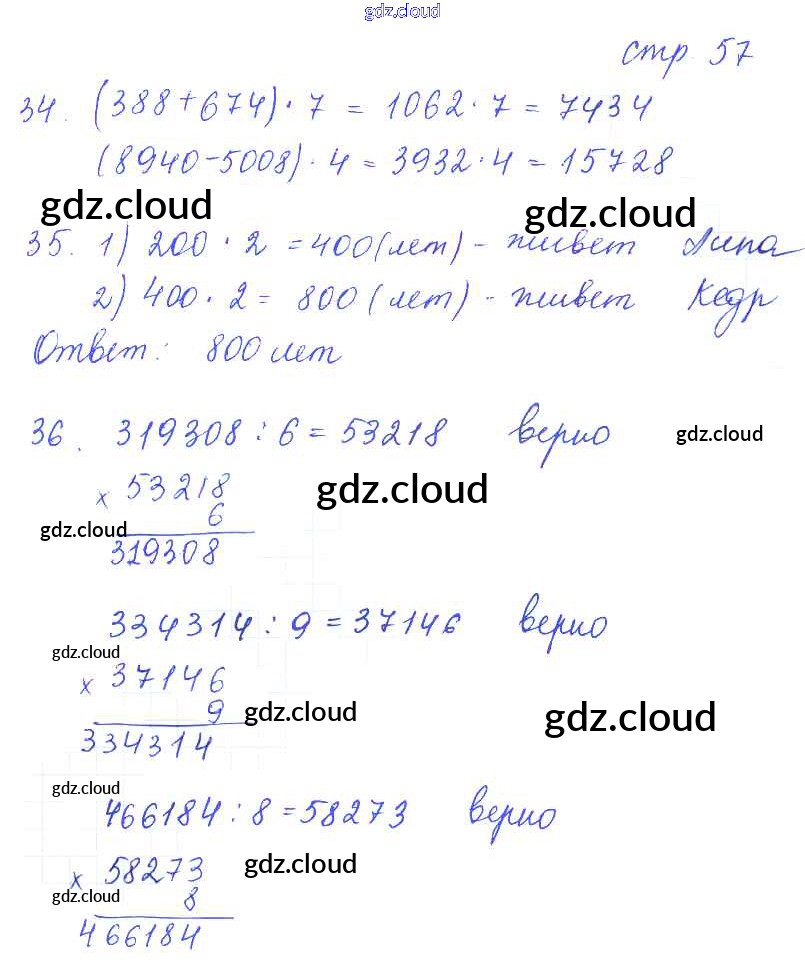 gdz.cloud
стр. 57
34. (388+674)·7 = 1062·7 = 7434
(8940-5008)·4 = 3932·4 = 15728
gdz.cloud gdz.cloud
35. 1) 200·2 = 400 (лет) - живет Липа
2) 400·2 = 800 (лет) - живет Кедр
Ответ: 800 лет
36. 319308 : 6 = 53218 верно gdz.cloud
x 53218 gdz.cloud
gdz.cloud 6
319308
334314 : 9 = 37146 верно
gdz.cloud
x 37146
9 gdz.cloud gdz.cloud
334314
gdz.cloud
466184 : 8 = 58273 верно
x 58273 gdz.cloud
gdz.cloud 8
466184